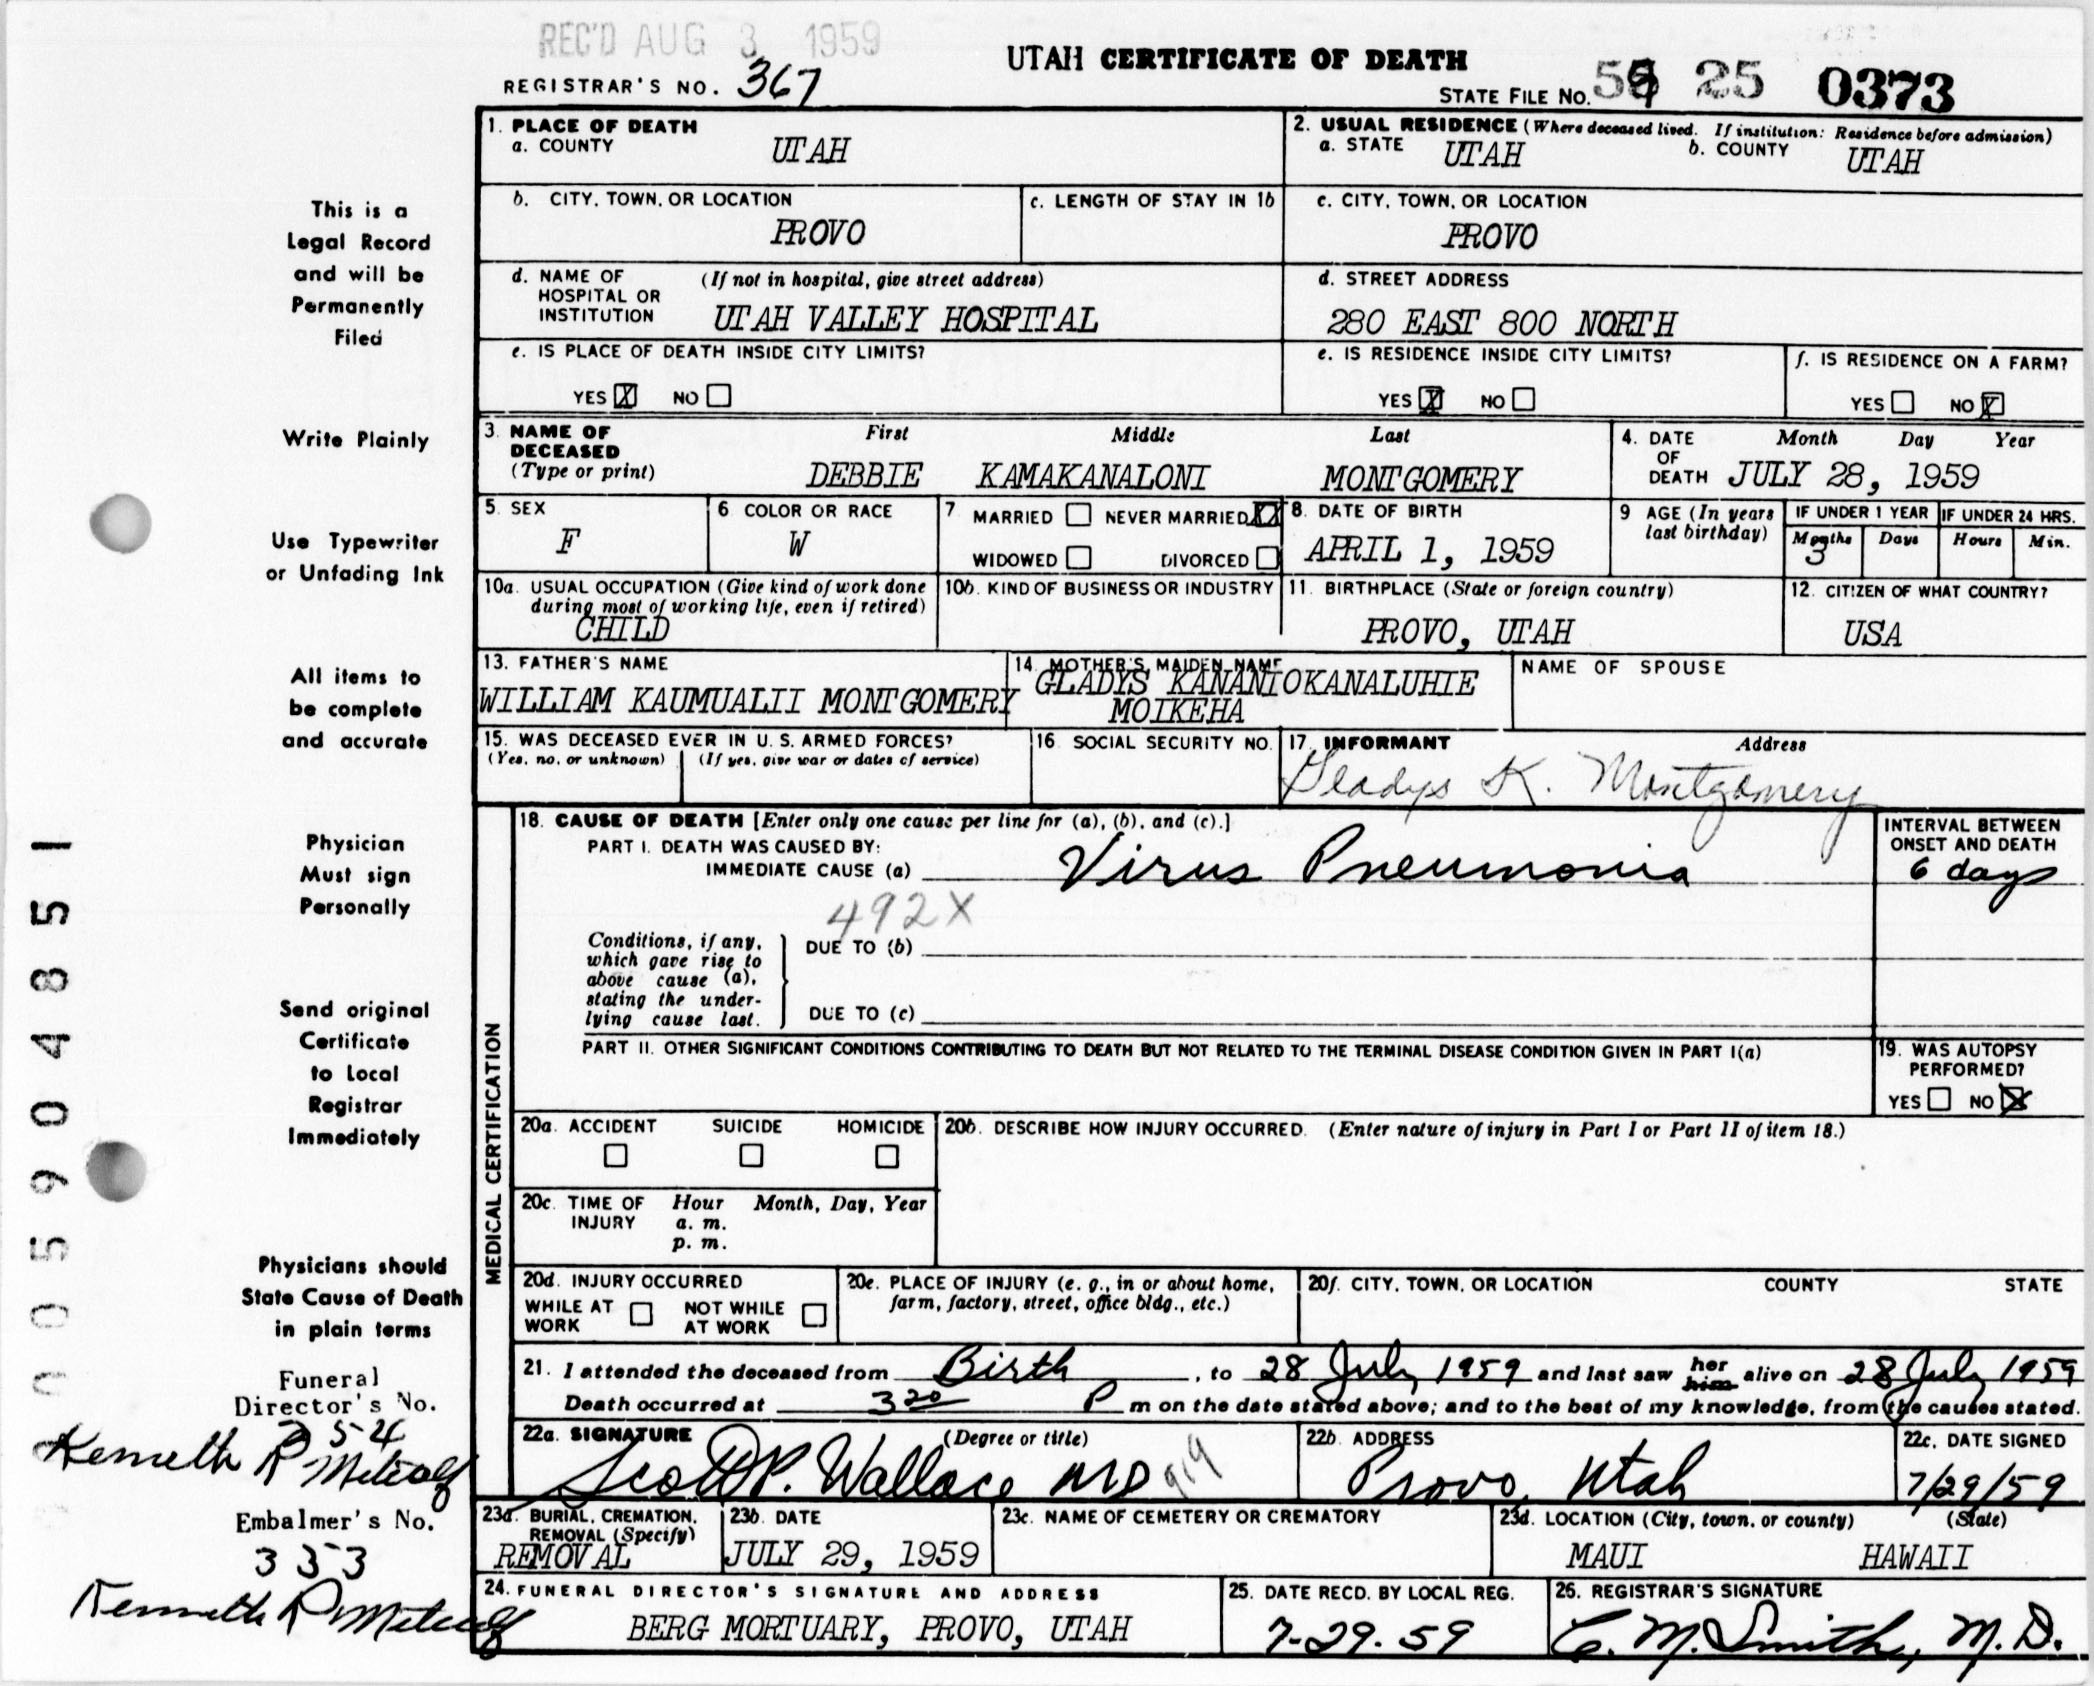 REC'D AUG 3 1959
UTAH CERTIFICATE OF DEATH
REGISTRAR'S NO. 367
STATE FILE NO. 59 25 0373
This is a
Legal Record
and will be
Permanently
Filed
Write Plainly
Use Typewriter
or Unfading Ink
All items to
be complete
and accurate
Physician
Must sign
Personally
Send original
Certificate
to Local
Registrar
Immediately
Physicians should
State Cause of Death
in plain terms
Funeral
Director's No.
Kenneth R Metcalf
Embalmer's No.
353
Kenneth R Metcalf
005904851
1. PLACE OF DEATH
a. COUNTY UTAH
2. USUAL RESIDENCE (Where deceased lived. If institution: Residence before admission)
a. STATE UTAH b. COUNTY UTAH
b. CITY, TOWN, OR LOCATION
PROVO
c. LENGTH OF STAY IN 1b
c. CITY, TOWN, OR LOCATION
PROVO
d. NAME OF HOSPITAL OR INSTITUTION (If not in hospital, give street address)
UTAH VALLEY HOSPITAL
d. STREET ADDRESS
280 EAST 800 NORTH
e. IS PLACE OF DEATH INSIDE CITY LIMITS?
YES X NO
e. IS RESIDENCE INSIDE CITY LIMITS?
YES X NO
f. IS RESIDENCE ON A FARM?
YES NO X
3. NAME OF DECEASED (Type or print)
First Middle Last
DEBBIE KAMAKANALONI MONTGOMERY
4. DATE OF DEATH Month Day Year
JULY 28, 1959
5. SEX
F
6 COLOR OR RACE
W
7 MARRIED NEVER MARRIED XX
WIDOWED DIVORCED
8. DATE OF BIRTH
APRIL 1, 1959
9 AGE (In years last birthday)
IF UNDER 1 YEAR IF UNDER 24 HRS.
Months Days Hours Min.
3
10a. USUAL OCCUPATION (Give kind of work done during most of working life, even if retired)
CHILD
10b. KIND OF BUSINESS OR INDUSTRY
11. BIRTHPLACE (State or foreign country)
PROVO, UTAH
12. CITIZEN OF WHAT COUNTRY?
USA
13. FATHER'S NAME
WILLIAM KAUMUALII MONTGOMERY
14. MOTHER'S MAIDEN NAME
GLADYS KANANIOKANALUHIE
MOIKEHA
NAME OF SPOUSE
15. WAS DECEASED EVER IN U. S. ARMED FORCES?
(Yes, no, or unknown) (If yes, give war or dates of service)
16. SOCIAL SECURITY NO.
17. INFORMANT Address
Gladys K. Montgomery
MEDICAL CERTIFICATION
18. CAUSE OF DEATH [Enter only one cause per line for (a), (b), and (c).]
PART I. DEATH WAS CAUSED BY:
IMMEDIATE CAUSE (a) Virus Pneumonia
INTERVAL BETWEEN
ONSET AND DEATH
6 days
492X
Conditions, if any,
which gave rise to
above cause (a),
stating the under-
lying cause last.
DUE TO (b)
DUE TO (c)
PART II. OTHER SIGNIFICANT CONDITIONS CONTRIBUTING TO DEATH BUT NOT RELATED TO THE TERMINAL DISEASE CONDITION GIVEN IN PART I(a)
19. WAS AUTOPSY
PERFORMED?
YES NO X
20a. ACCIDENT SUICIDE HOMICIDE
20b. DESCRIBE HOW INJURY OCCURRED. (Enter nature of injury in Part I or Part II of item 18.)
20c. TIME OF INJURY Hour Month, Day, Year
a. m.
p. m.
20d. INJURY OCCURRED
WHILE AT WORK NOT WHILE AT WORK
20e. PLACE OF INJURY (e. g., in or about home, farm, factory, street, office bldg., etc.)
20f. CITY, TOWN, OR LOCATION COUNTY STATE
21. I attended the deceased from Birth, to 28 July 1959 and last saw her him alive on 28 July 1959
Death occurred at 3 20 P m on the date stated above; and to the best of my knowledge, from the causes stated.
22a. SIGNATURE (Degree or title)
Scott P. Wallace MD
22b. ADDRESS
Provo, Utah
22c. DATE SIGNED
7/29/59
23a. BURIAL, CREMATION, REMOVAL (Specify)
REMOVAL
23b. DATE
JULY 29, 1959
23c. NAME OF CEMETERY OR CREMATORY
23d. LOCATION (City, town, or county) (State)
MAUI HAWAII
24. FUNERAL DIRECTOR'S SIGNATURE AND ADDRESS
BERG MORTUARY, PROVO, UTAH
25. DATE RECD. BY LOCAL REG.
7-29-59
26. REGISTRAR'S SIGNATURE
C. M. Smith, M.D.